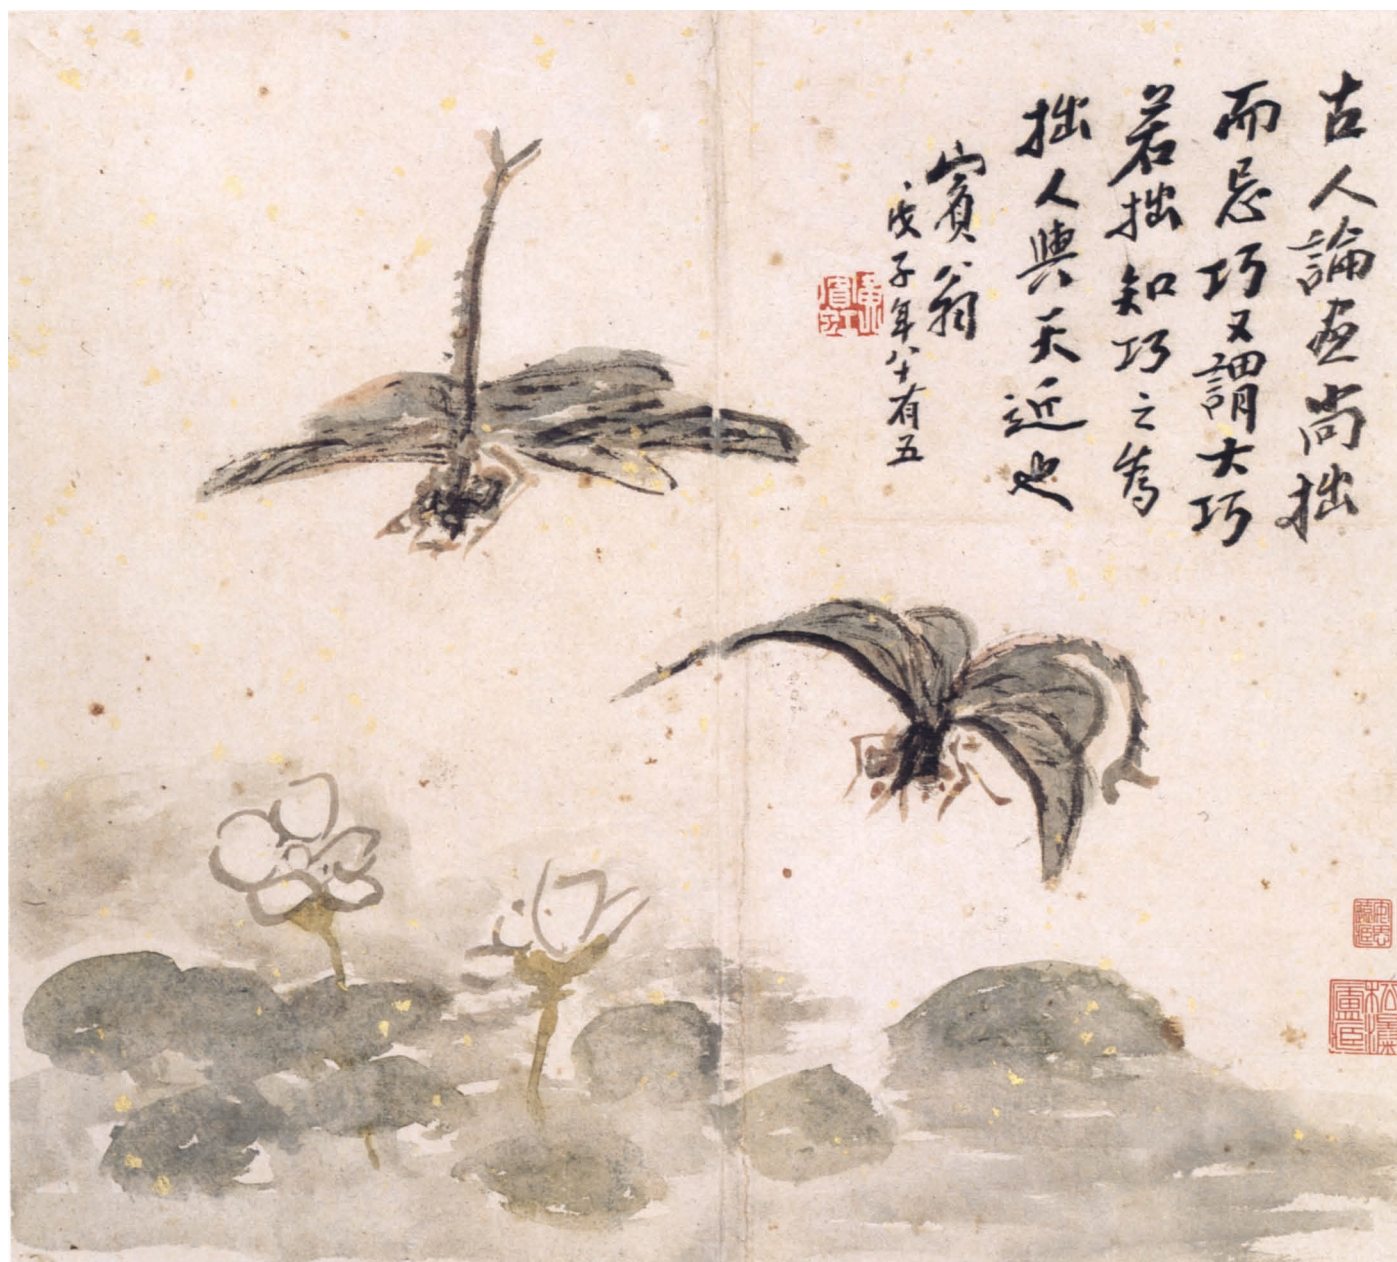 古人論畫尚拙
而忌巧又謂大巧
若拙知巧之為
拙人與天近也
賓公翁
戊子年八十有五
黃賓虹